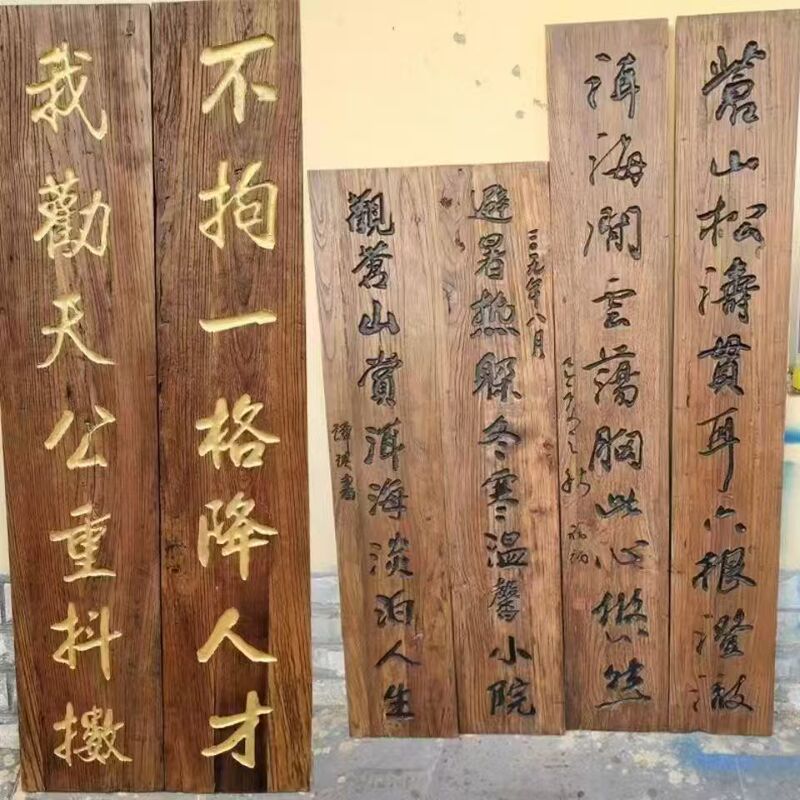 蒼山松濤貫耳六根澄澈
洱海閒雲蕩胸此心悠然
二〇一九年八月
避暑熱躲冬寒溫馨小院
觀蒼山賞洱海淡泊人生
不拘一格降人才
我勸天公重抖擻